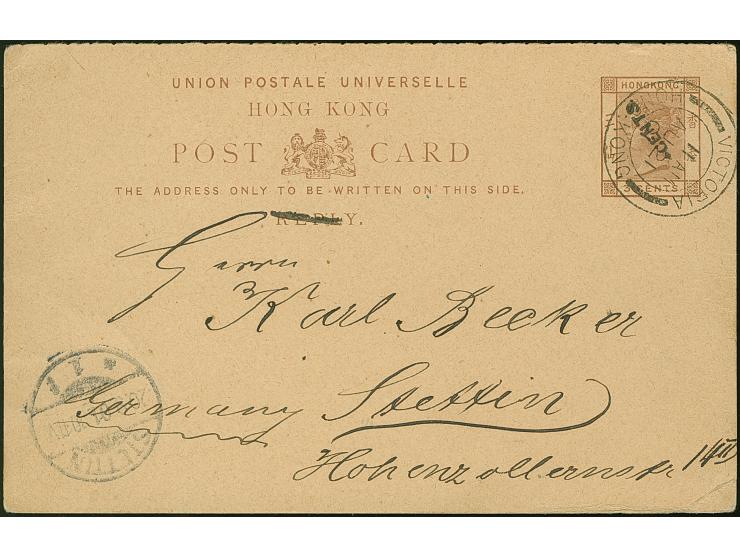 UNION POSTALE UNIVERSELLE
HONG KONG
POST CARD
THE ADDRESS ONLY TO BE WRITTEN ON THIS SIDE.
REPLY.
HONGKONG
CENTS
VICTORIA
HONG KONG
Herrn
Karl Becker
Germany Stettin
Hohenzollernstr 14III
STETTIN